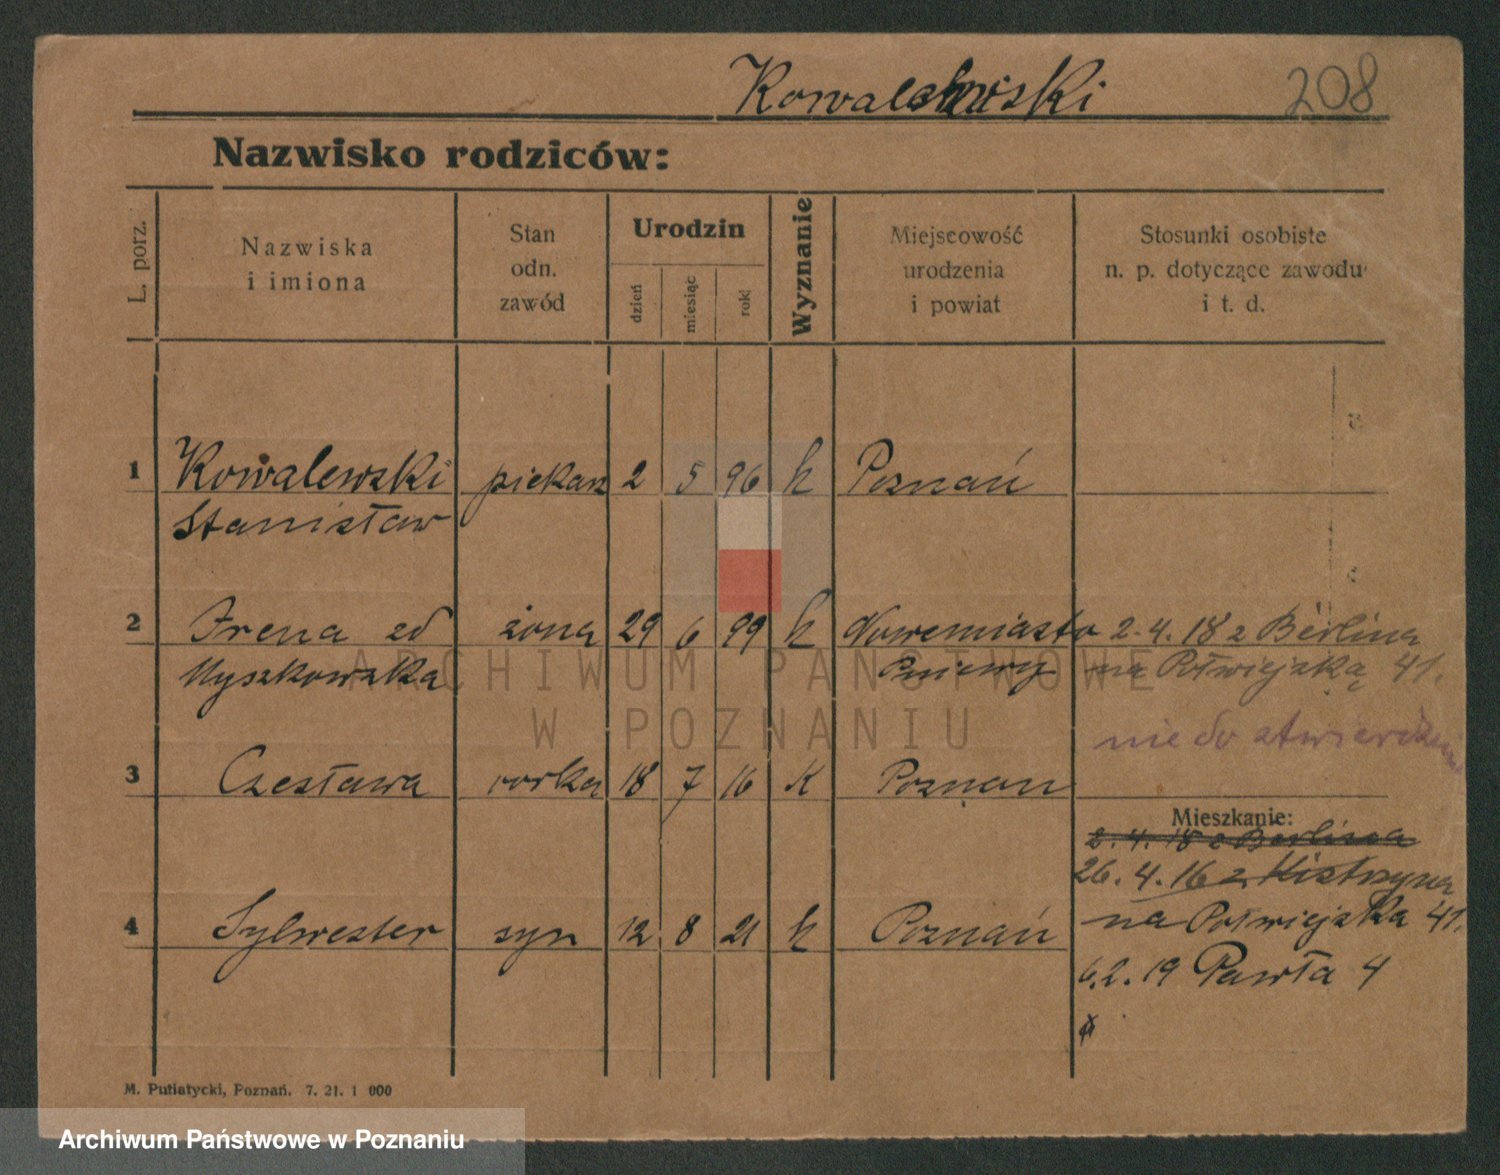 Kowalewski 208
Nazwisko rodziców:
L. porz.
Nazwiska
i imiona
Stan
odn.
zawód
Urodzin
dzień
miesiąc
rok
Wyznanie
Miejscowość
urodzenia
i powiat
Stosunki osobiste
n. p. dotyczące zawodu
i t. d.
1 Kowalewski piekarz 2 5 96 k Poznań
Stanisław
2 Irena zd żona 29 6 99 k Nowemiasto 2.4.18 z Berlina
Myszkowska Pniewy na Półwiejską 41.
nie do stwierdzenia
3 Czesława corka 18 7 16 k Poznan
Mieszkanie:
2.4.18 z Berlina
26.4.16 z Kistrzyna
4 Sylwester syn 12 8 21 k Poznań na Półwiejska 41.
6.2.19 Pawła 4
M. Putiatycki, Poznań. 7. 21. 1 000
ARCHIWUM PAŃSTWOWE
W POZNANIU
Archiwum Państwowe w Poznaniu